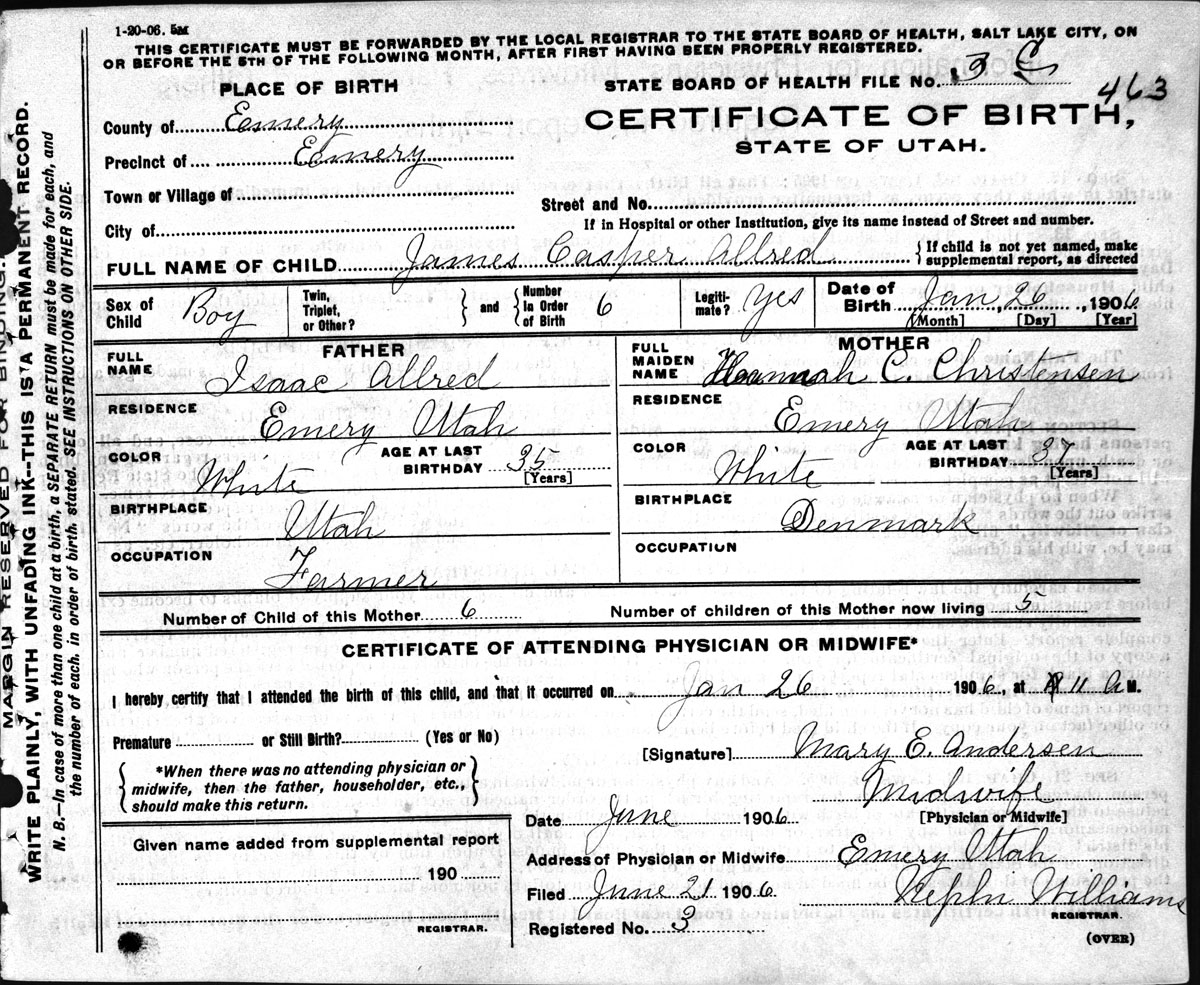 1-20-06. 5M
THIS CERTIFICATE MUST BE FORWARDED BY THE LOCAL REGISTRAR TO THE STATE BOARD OF HEALTH, SALT LAKE CITY, ON
OR BEFORE THE 5TH OF THE FOLLOWING MONTH, AFTER FIRST HAVING BEEN PROPERLY REGISTERED.
PLACE OF BIRTH
STATE BOARD OF HEALTH FILE NO. 3 C
463
County of Emery
CERTIFICATE OF BIRTH,
Precinct of Emery
STATE OF UTAH.
Town or Village of
Street and No.
City of
If in Hospital or other Institution, give its name instead of Street and number.
FULL NAME OF CHILD James Casper Allred
{ If child is not yet named, make
supplemental report, as directed
Sex of Child Boy
Twin, Triplet, or Other? } and { Number in Order of Birth 6
Legiti-mate? Yes
Date of Birth Jan 26, 1906
[Month] [Day] [Year]
FATHER
FULL NAME Isaac Allred
RESIDENCE Emery Utah
COLOR White AGE AT LAST BIRTHDAY 35 [Years]
BIRTHPLACE Utah
OCCUPATION Farmer
MOTHER
FULL MAIDEN NAME Hannah C. Christensen
RESIDENCE Emery Utah
COLOR White AGE AT LAST BIRTHDAY [Years]
BIRTHPLACE Denmark
OCCUPATION
Number of Child of this Mother 6 Number of children of this Mother now living 5
CERTIFICATE OF ATTENDING PHYSICIAN OR MIDWIFE*
I hereby certify that I attended the birth of this child, and that it occurred on Jan 26 1906, at 11 A M.
Premature or Still Birth? (Yes or No)
[Signature] Mary E. Andersen
{ *When there was no attending physician or
midwife, then the father, householder, etc.,
should make this return. }
Midwife
[Physician or Midwife]
Date June 1906
Given name added from supplemental report
190
REGISTRAR.
Address of Physician or Midwife Emery Utah
Filed June 21 1906 Nephi Williams
REGISTRAR.
Registered No. 3
(OVER)
MARGIN RESERVED FOR BINDING.
WRITE PLAINLY, WITH UNFADING INK--THIS IS A PERMANENT RECORD.
N. B.--In case of more than one child at a birth, a SEPARATE RETURN must be made for each, and
the number of each, in order of birth, stated. SEE INSTRUCTIONS ON OTHER SIDE.